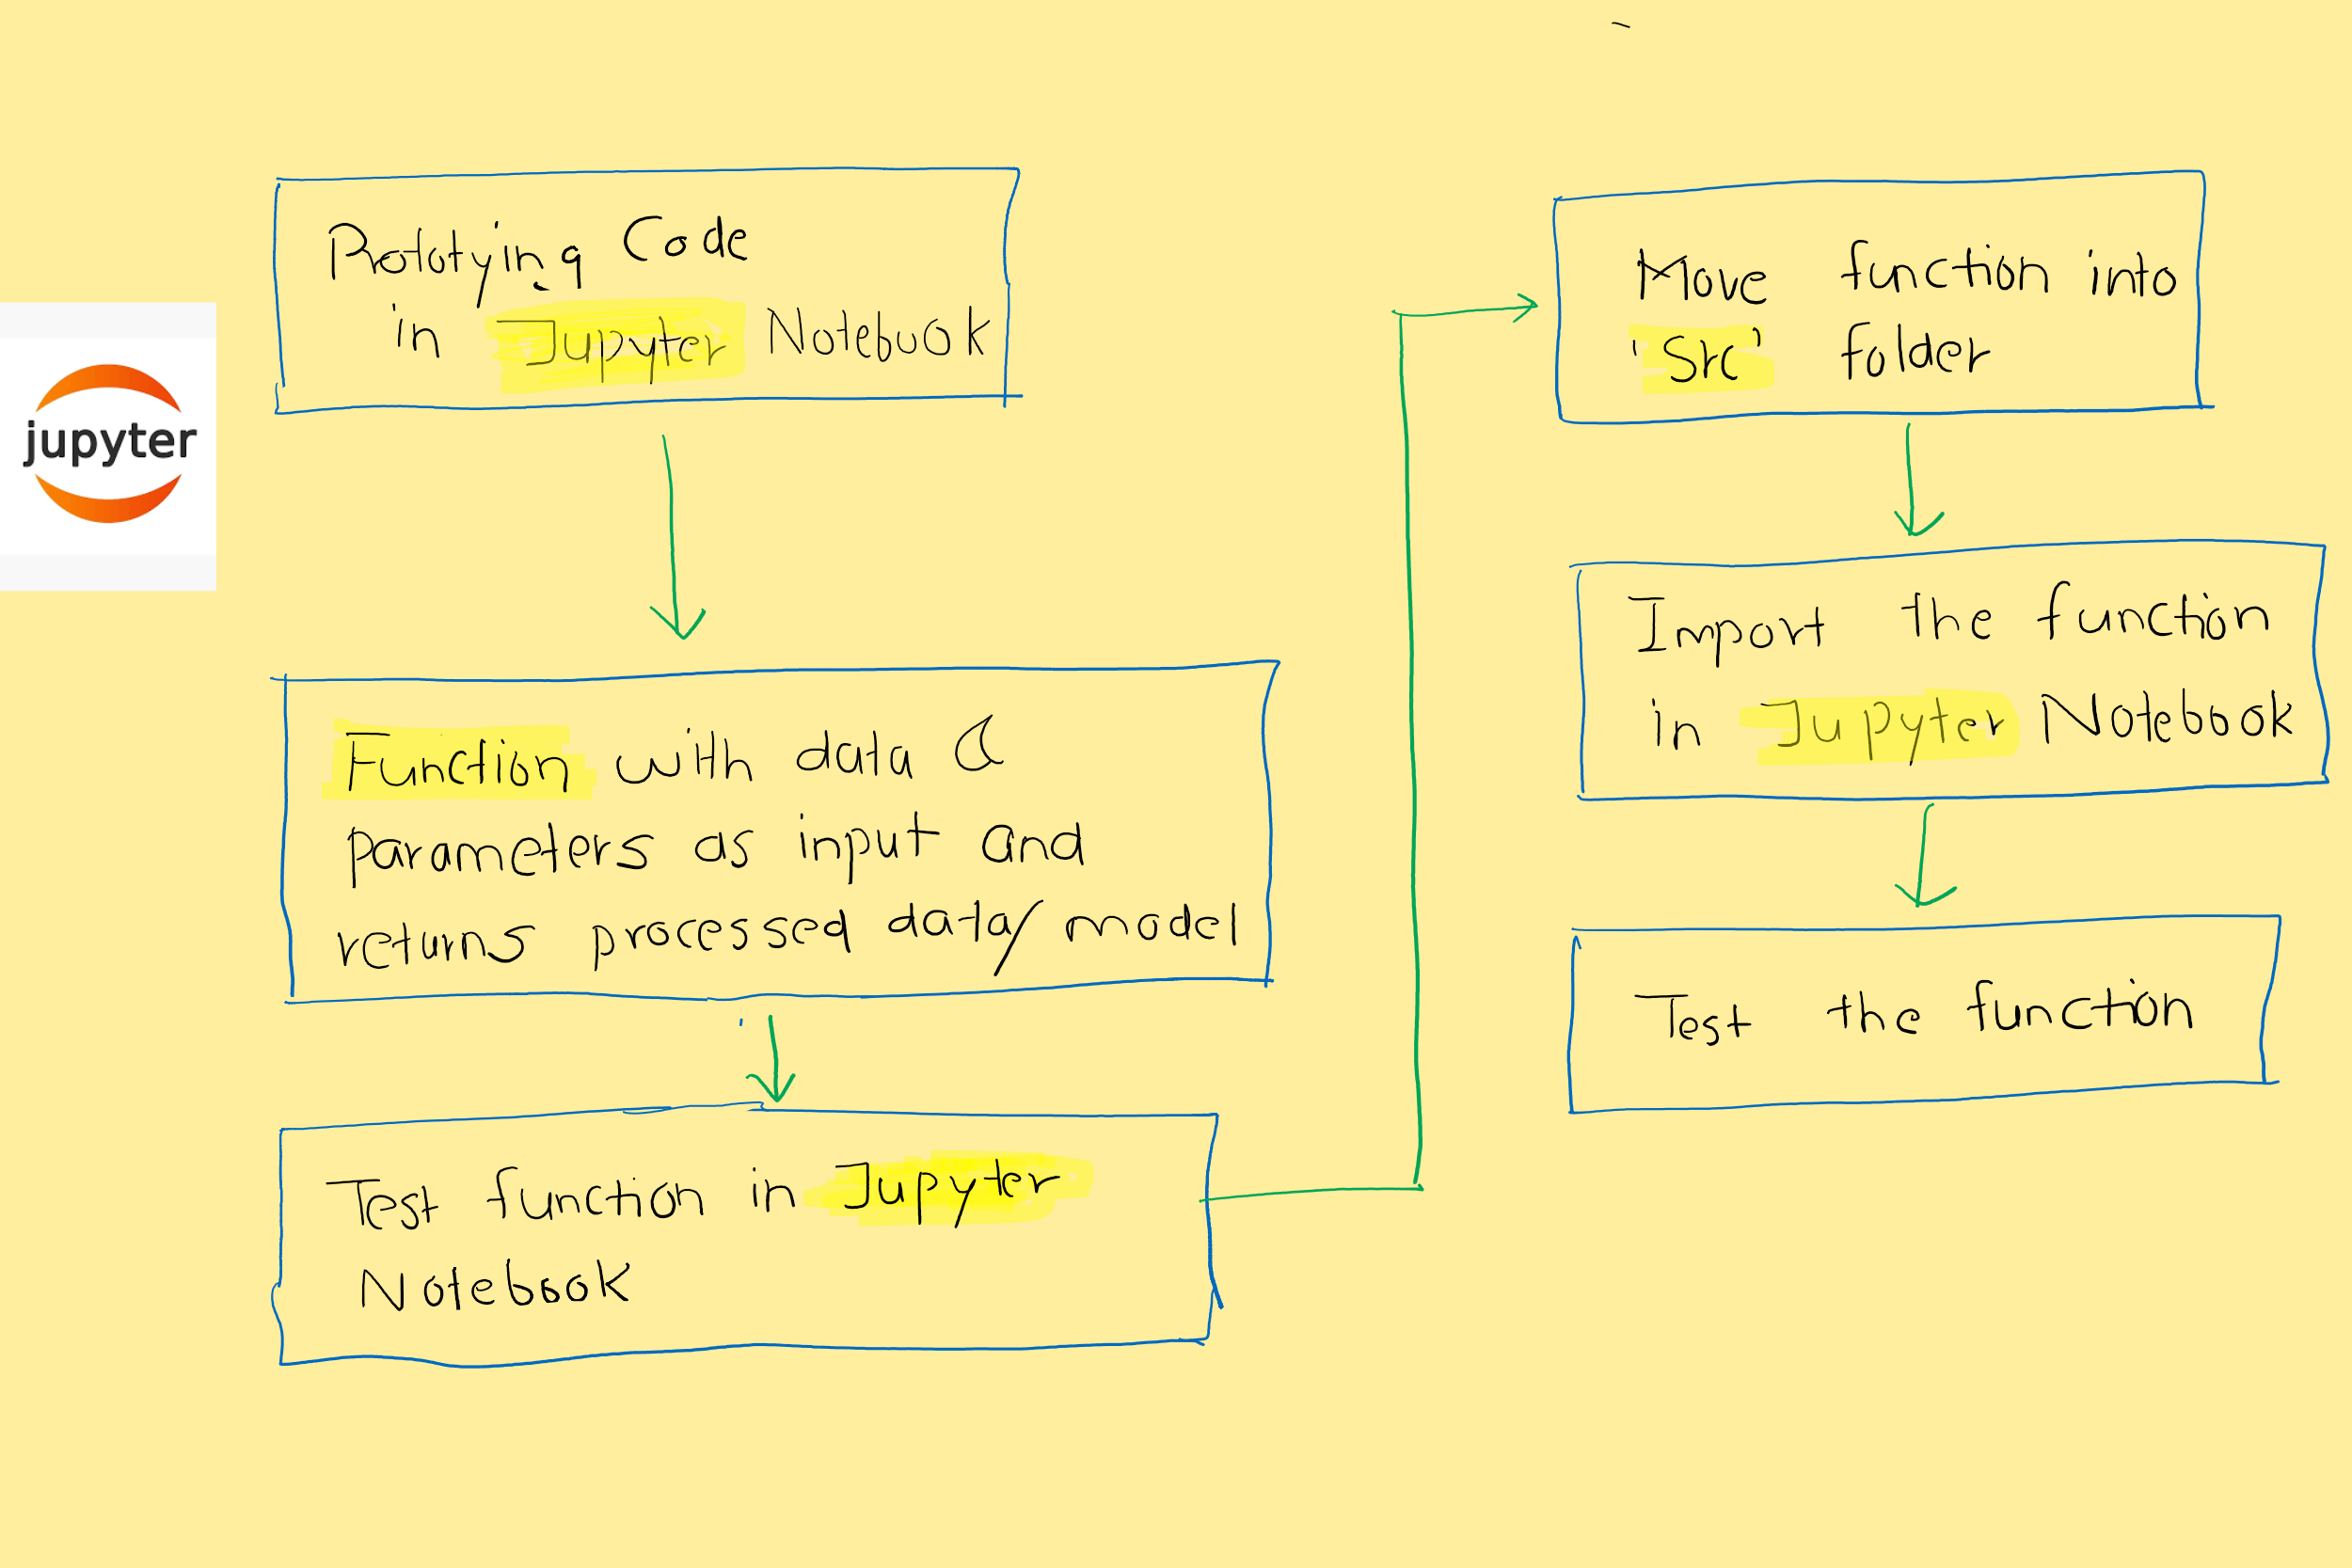 jupyter
Prototying Code
in Jupyter Notebook
Function with data &
parameters as input and
returns processed data/model
Test function in Jupyter
Notebook
Move function into
'Src' folder
Import the function
in Jupyter Notebook
Test the function